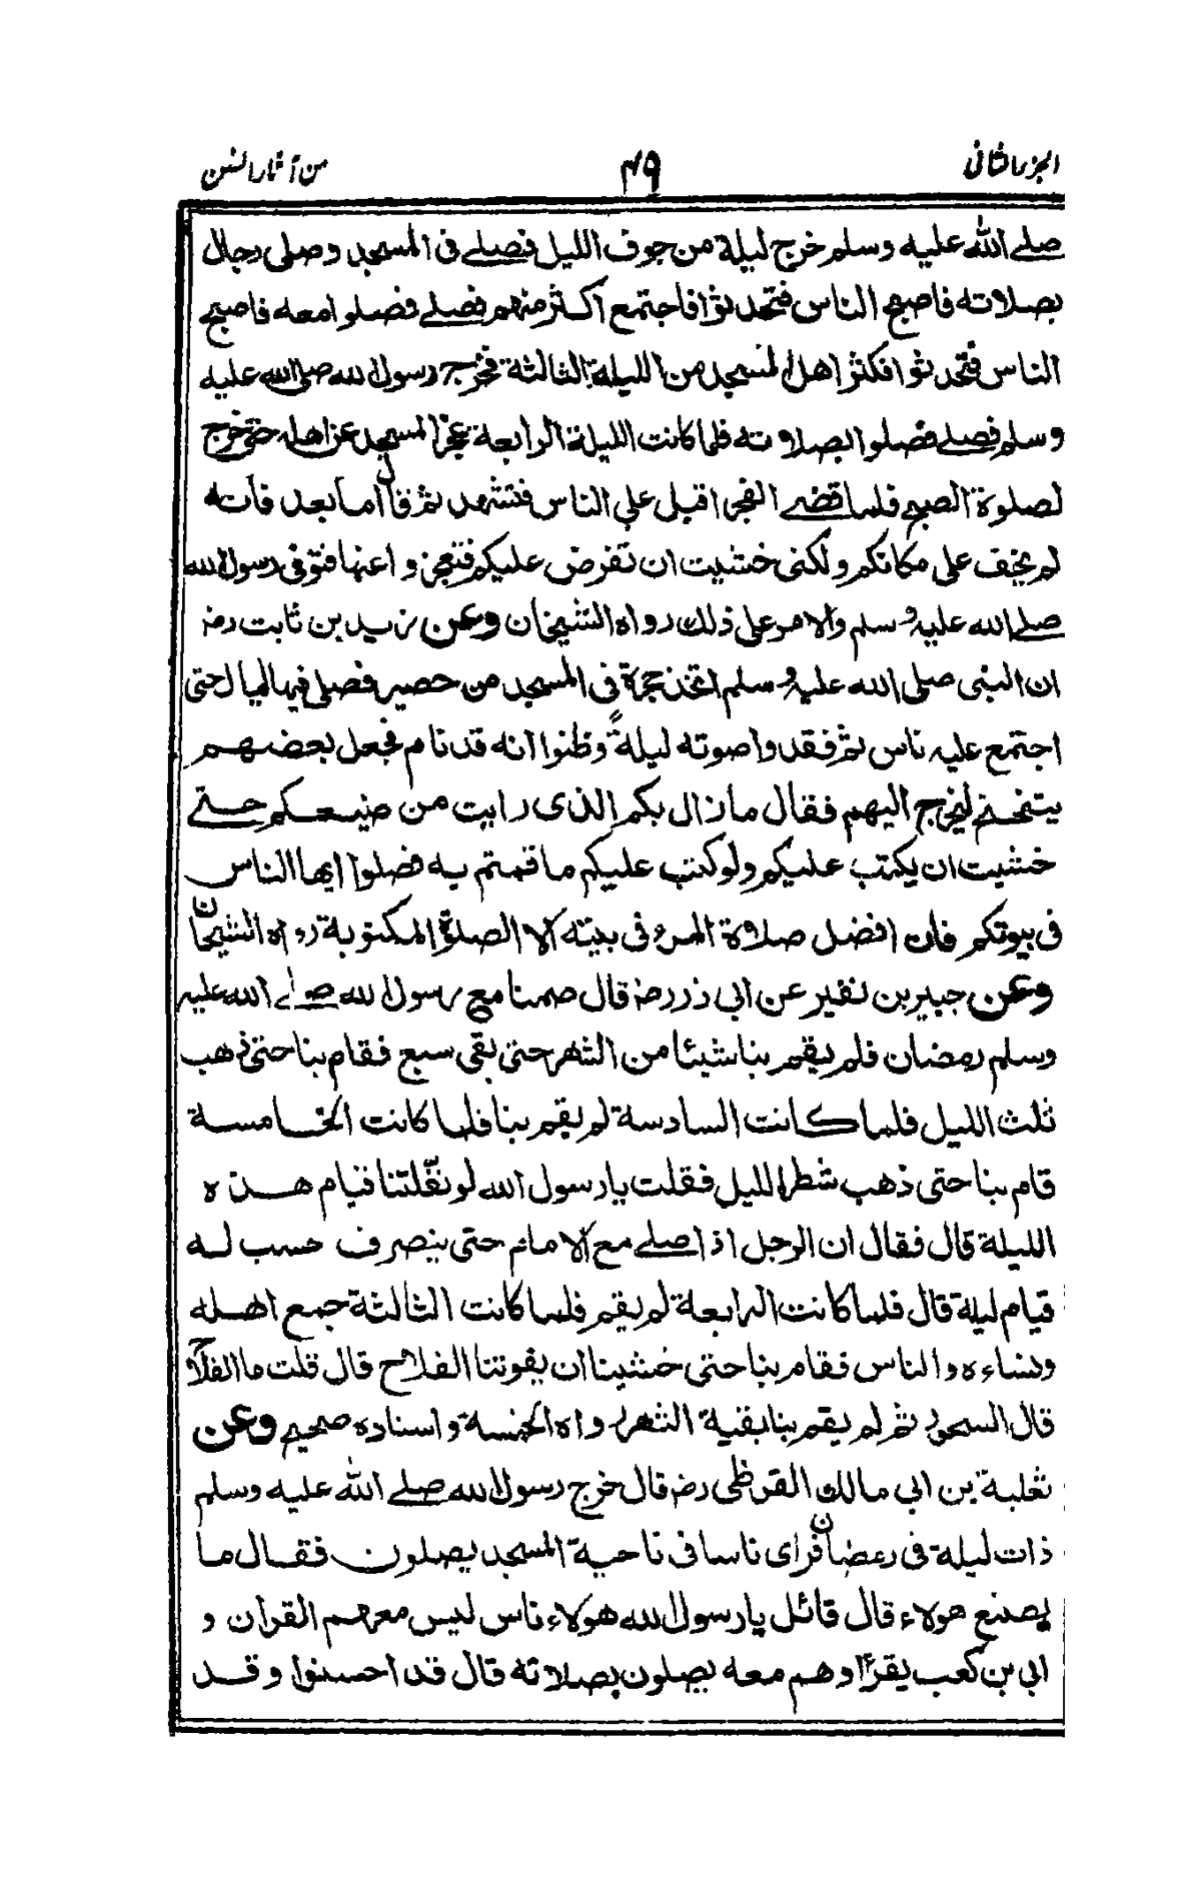 الجزء الثاني
٤٩
من آثار السنن
صلے الله عليه وسلم خرج ليلة من جوف الليل فصلے فى المسجد وصلى رجال
بصلاته فاصبح الناس فتحدثوا فاجتمع اكثر منهم فصلے فصلوا معه فاصبح
الناس فتحدثوا فكثر اهل المسجد من الليلة الثالثة فخرج رسول الله صلى الله عليه
وسلم فصلے فصلوا بصلاوته فلما كانت الليلة الرابعة عجز المسجد عن اهله حتى خرج
لصلوة الصبح فلما قضے الفجر اقبل على الناس فتشهد ثم قال اما بعد فانه
لم يخف على مكانكم ولكنى خشيت ان تفرض عليكم فتعجزوا عنها فتوفى رسول الله
صلے الله عليه وسلم والامر على ذلك رواه الشيخان وعن زيد بن ثابت رضـ
ان النبى صلى الله عليه وسلم اتخذ حجرة فى المسجد من حصير فصلى فيها ليالى حتى
اجتمع عليه ناس ثم فقدوا صوته ليلةً وظنوا انه قد نام فجعل بعضهم
يتنحنح ليخرج اليهم فقال ما زال بكم الذى رايت من صنيعكم حتے
خشيت ان يكتب عليكم ولو كتب عليكم ما قمتم به فصلوا ايها الناس
فى بيوتكم فان افضل صلاوة المرء فى بيته الا الصلوة المكتوبة رواه الشيخان
وعن جبير بن نفير عن ابى ذر رضـ قال صمنا مع رسول الله صلے الله عليه
وسلم رمضان فلم يقم بنا شيئا من الشهر حتى بقى سبع فقام بنا حتى ذهب
ثلث الليل فلما كانت السادسة لم يقم بنا فلما كانت الخامسة
قام بنا حتى ذهب شطر الليل فقلت يا رسول الله لو نفّلتنا قيام هذه
الليلة قال فقال ان الرجل اذا صلے مع الامام حتى ينصرف حسب له
قيام ليلة قال فلما كانت الرابعة لم يقم فلما كانت الثالثة جمع اهله
ونساءه والناس فقام بنا حتى خشينا ان يفوتنا الفلاح قال قلت ما الفلاح
قال السحور ثم لم يقم بنا بقية الشهر رواه الخمسة واسناده صحيح وعن
ثعلبة بن ابى مالك القرظى رضـ قال خرج رسول الله صلے الله عليه وسلم
ذات ليلة فى رمضان فراى ناسا فى ناحية المسجد يصلون فقال ما
يصنع هولاء قال قائل يا رسول الله هولاء ناس ليس معهم القران و
ابى بن كعب يقرأ وهم معه يصلون بصلاته قال قد احسنوا وقد